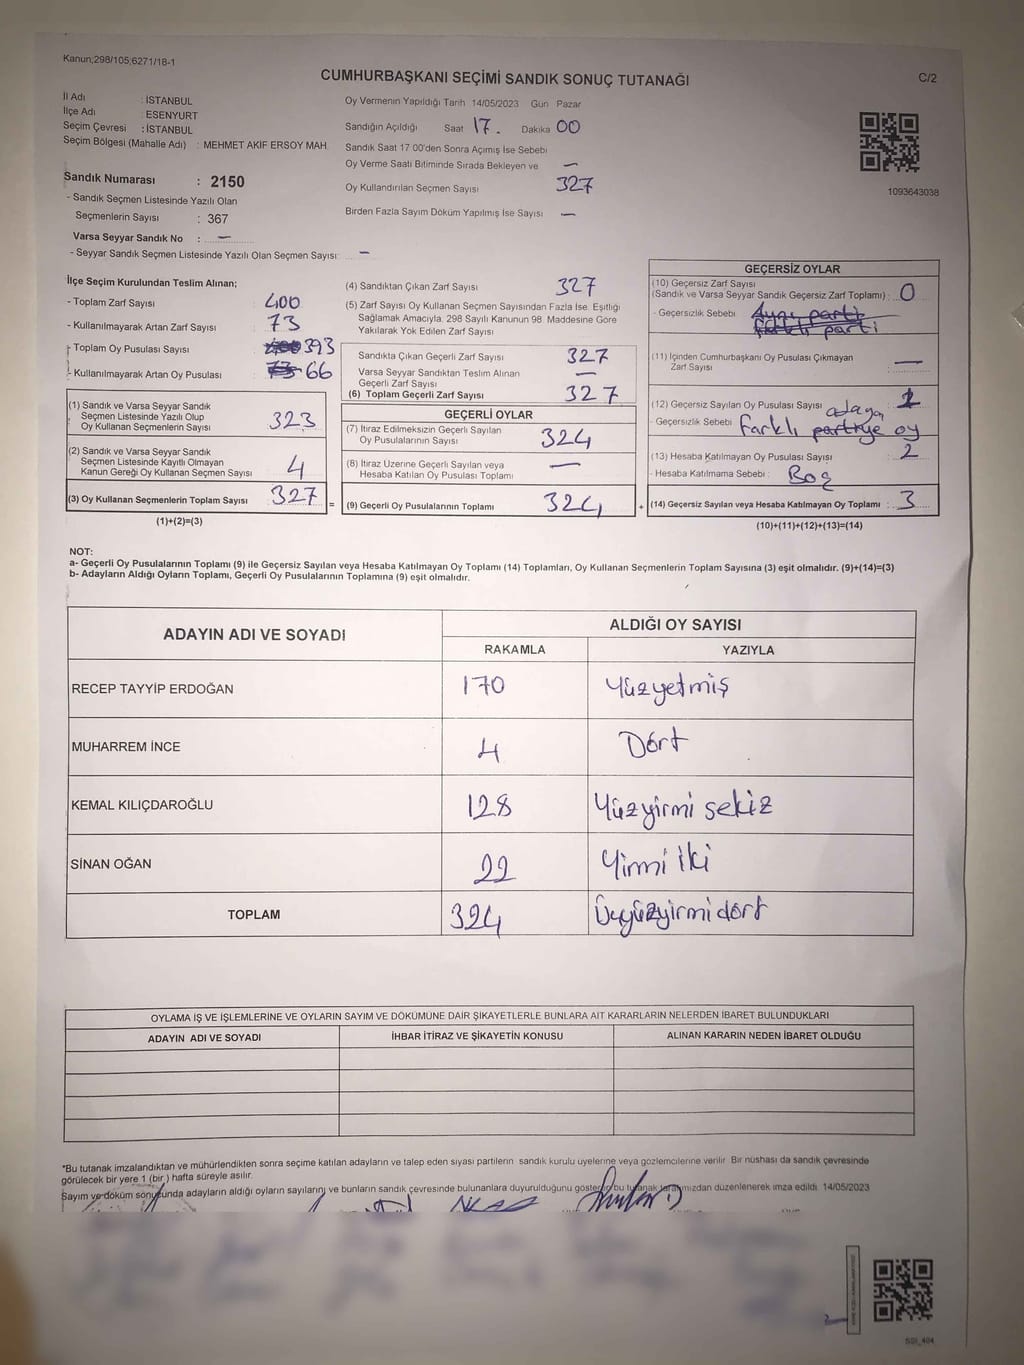 Kanun;298/105;6271/18-1
CUMHURBAŞKANI SEÇİMİ SANDIK SONUÇ TUTANAĞI
C/2
İl Adı : İSTANBUL
İlçe Adı : ESENYURT
Seçim Çevresi : İSTANBUL
Seçim Bölgesi (Mahalle Adı) : MEHMET AKİF ERSOY MAH.
Sandık Numarası : 2150
- Sandık Seçmen Listesinde Yazılı Olan
Seçmenlerin Sayısı : 367
Varsa Seyyar Sandık No : —
- Seyyar Sandık Seçmen Listesinde Yazılı Olan Seçmen Sayısı: —
Oy Vermenin Yapıldığı Tarih 14/05/2023 Gün Pazar
Sandığın Açıldığı Saat 17. Dakika 00
Sandık Saat 17 00'den Sonra Açımış İse Sebebi
Oy Verme Saati Bitiminde Sırada Bekleyen ve —
Oy Kullandırılan Seçmen Sayısı 327
Birden Fazla Sayım Döküm Yapılmış İse Sayısı —
1093643038
İlçe Seçim Kurulundan Teslim Alınan;
- Toplam Zarf Sayısı 400
- Kullanılmayarak Artan Zarf Sayısı 73
- Toplam Oy Pusulası Sayısı 400 393
- Kullanılmayarak Artan Oy Pusulası 73 66
(1) Sandık ve Varsa Seyyar Sandık
Seçmen Listesinde Yazılı Olup
Oy Kullanan Seçmenlerin Sayısı 323
(2) Sandık ve Varsa Seyyar Sandık
Seçmen Listesinde Kayıtlı Olmayan
Kanun Gereği Oy Kullanan Seçmen Sayısı 4
(3) Oy Kullanan Seçmenlerin Toplam Sayısı 327
(1)+(2)=(3)
(4) Sandıktan Çıkan Zarf Sayısı 327
(5) Zarf Sayısı Oy Kullanan Seçmen Sayısından Fazla İse, Eşitliği
Sağlamak Amacıyla, 298 Sayılı Kanunun 98. Maddesine Göre
Yakılarak Yok Edilen Zarf Sayısı
Sandıkta Çıkan Geçerli Zarf Sayısı 327
Varsa Seyyar Sandıktan Teslim Alınan
Geçerli Zarf Sayısı —
(6) Toplam Geçerli Zarf Sayısı 327
GEÇERLİ OYLAR
(7) İtiraz Edilmeksizin Geçerli Sayılan
Oy Pusulalarının Sayısı 324
(8) İtiraz Üzerine Geçerli Sayılan veya
Hesaba Katılan Oy Pusulası Toplamı —
= (9) Geçerli Oy Pusulalarının Toplamı 324 +
GEÇERSİZ OYLAR
(10) Geçersiz Zarf Sayısı
(Sandık ve Varsa Seyyar Sandık Geçersiz Zarf Toplamı) : 0
- Geçersizlik Sebebi : Aynı parti
farklı parti
(11) İçinden Cumhurbaşkanı Oy Pusulası Çıkmayan
Zarf Sayısı : —
(12) Geçersiz Sayılan Oy Pusulası Sayısı : 1
- Geçersizlik Sebebi : farklı partiye oy
(13) Hesaba Katılmayan Oy Pusulası Sayısı : 2
- Hesaba Katılmama Sebebi : Boş
(14) Geçersiz Sayılan veya Hesaba Katılmayan Oy Toplamı : 3
(10)+(11)+(12)+(13)=(14)
NOT:
a- Geçerli Oy Pusulalarının Toplamı (9) ile Geçersiz Sayılan veya Hesaba Katılmayan Oy Toplamı (14) Toplamları, Oy Kullanan Seçmenlerin Toplam Sayısına (3) eşit olmalıdır. (9)+(14)=(3)
b- Adayların Aldığı Oyların Toplamı, Geçerli Oy Pusulalarının Toplamına (9) eşit olmalıdır.
ADAYIN ADI VE SOYADI
ALDIĞI OY SAYISI
RAKAMLA YAZIYLA
RECEP TAYYİP ERDOĞAN 170 Yüzyetmiş
MUHARREM İNCE 4 Dört
KEMAL KILIÇDAROĞLU 128 Yüzyirmi sekiz
SİNAN OĞAN 22 Yirmi iki
TOPLAM 324 Üçyüzyirmi dört
OYLAMA İŞ VE İŞLEMLERİNE VE OYLARIN SAYIM VE DÖKÜMÜNE DAİR ŞİKAYETLERLE BUNLARA AİT KARARLARIN NELERDEN İBARET BULUNDUKLARI
ADAYIN ADI VE SOYADI İHBAR İTİRAZ VE ŞİKAYETİN KONUSU ALINAN KARARIN NEDEN İBARET OLDUĞU
*Bu tutanak imzalandıktan ve mühürlendikten sonra seçime katılan adayların ve talep eden siyasi partilerin sandık kurulu üyelerine veya gözlemcilerine verilir. Bir nüshası da sandık çevresinde
görülecek bir yere 1 (bir ) hafta süreyle asılır.
Sayım ve döküm sonucunda adayların aldığı oyların sayılarını ve bunların sandık çevresinde bulunanlara duyurulduğunu gösterir bu tutanak tarafımızdan düzenlenerek imza edildi. 14/05/2023